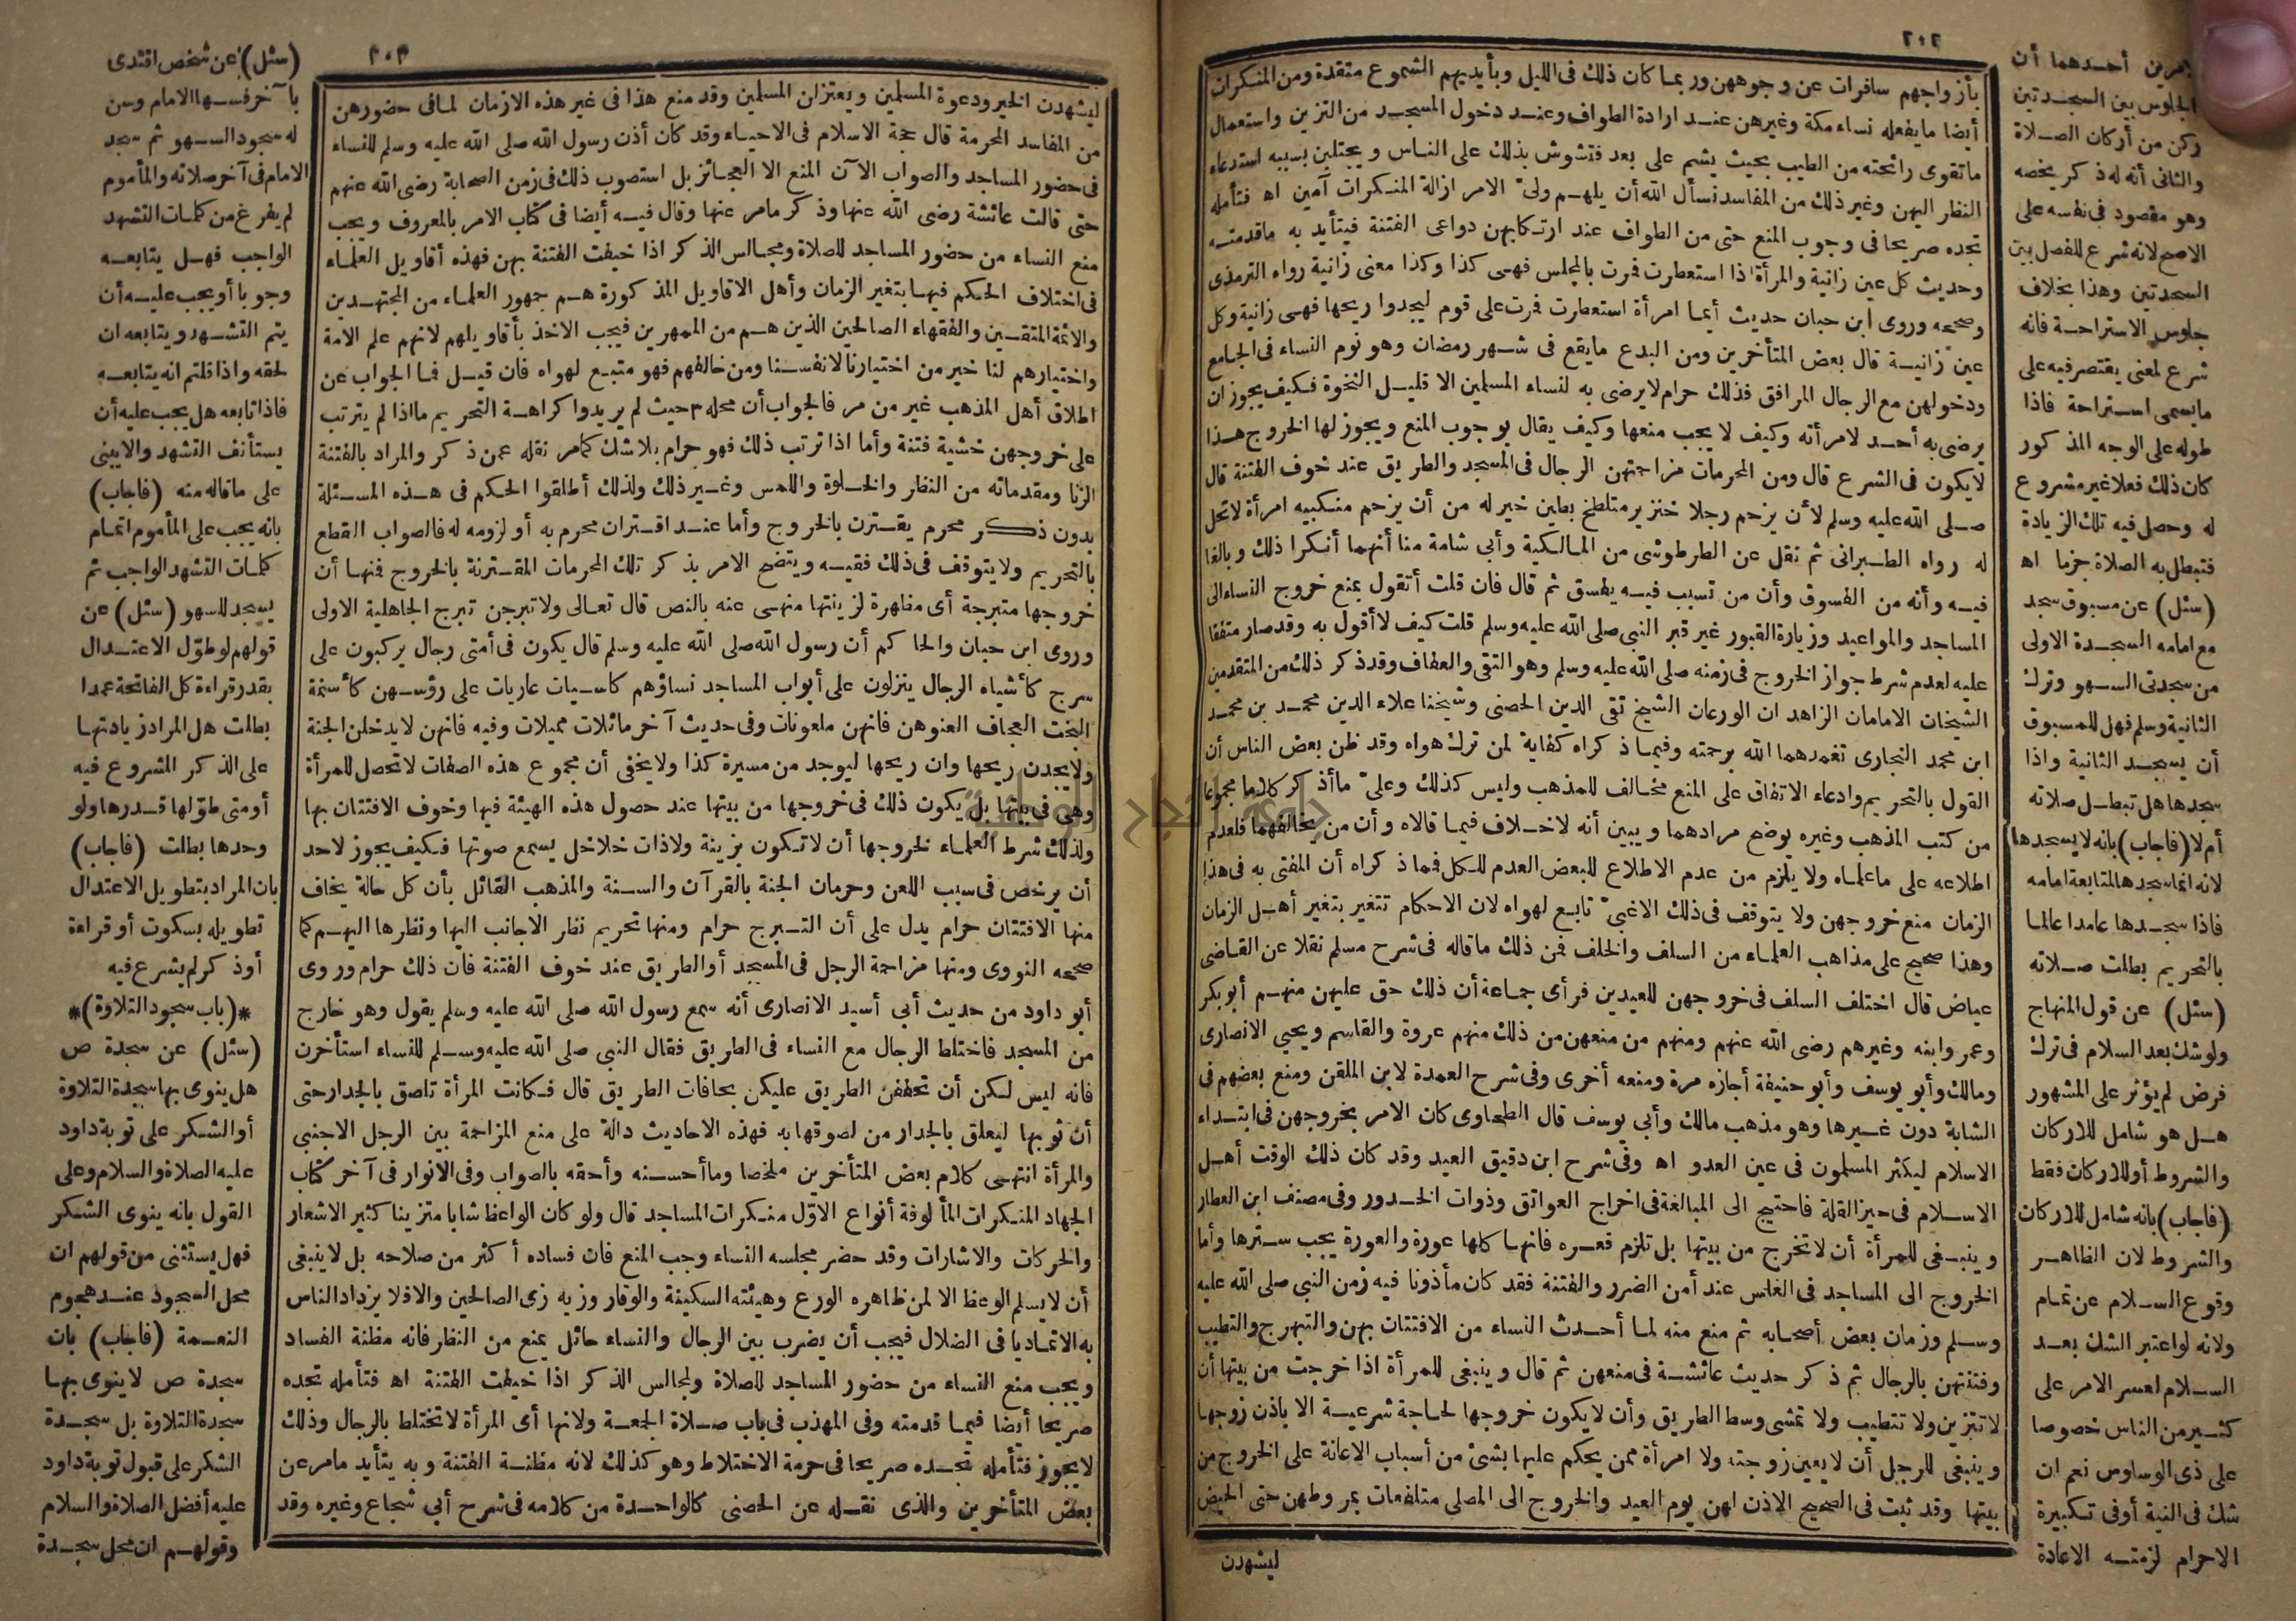 ٢٠٢
بأزواجهم سافرات عن وجوههن وربما كان ذلك فى الليل وبأيديهم الشموع متقدة ومن المنكرات
أيضا ما يفعله نساء مكة وغيرهن عند ارادة الطواف وعند دخول المسجد من التزين واستعمال
ما تقوى رائحته من الطيب بحيث يشم على بعد فتشوش بذلك على الناس ويجتلبن بسببه استدعاء
النظر اليهن وغير ذلك من المفاسد نسأل الله أن يلهم ولىّ الامر ازالة المنكرات آمين اه فتأمله
تجده صريحا فى وجوب المنع حتى من الطواف عند ارتكابهن دواعى الفتنة فيتأيد به ما قدمته
وحديث كل عين زانية والمرأة اذا استعطرت فمرت بالمجلس فهى كذا وكذا معنى زانية رواه الترمذى
وصححه وروى ابن حبان حديث أيما امرأة استعطرت فمرت على قوم ليجدوا ريحها فهى زانية وكل
عين زانية قال بعض المتأخرين ومن البدع ما يقع فى شهر رمضان وهو نوم النساء فى الجامع
ودخولهن مع الرجال المرافق فذلك حرام لا يرضى به لنساء المسلمين الا قليل النخوة فكيف يجوز ان
يرضى به أحد لامرأته وكيف لا يجب منعها وكيف يقال بوجوب المنع ويجوز لها الخروج هذا
لا يكون فى الشرع قال ومن المحرمات مزاحمتهن الرجال فى المسجد والطريق عند خوف الفتنة قال
صلى الله عليه وسلم لأن يزحم رجلا خنزير متلطخ بطين خير له من أن يزحم منكبيه امرأة لا تحل
له رواه الطبرانى ثم نقل عن الطرطوشى من المالكية وأبى شامة منا أنهما أنكرا ذلك وبالغا
فيه وأنه من الفسوق وأن من تسبب فيه يفسق ثم قال فان قلت أتقول بمنع خروج النساء الى
المساجد والمواعيد وزيارة القبور غير قبر النبى صلى الله عليه وسلم قلت كيف لا أقول به وقد صار متفقا
عليه لعدم شرط جواز الخروج فى زمنه صلى الله عليه وسلم وهو التقى والعفاف وقد ذكر ذلك من المتقدمين
الشيخان الامامان الزاهدان الورعان الشيخ تقى الدين الحصنى وشيخنا علاء الدين محمد بن محمد
ابن محمد النجارى تغمدهما الله برحمته وفيما ذكراه كفاية لمن ترك هواه وقد ظن بعض الناس أن
القول بالتحريم وادعاء الاتفاق على المنع مخالف للمذهب وليس كذلك وعلىّ ما أذكر كلاما مجموعا
من كتب المذهب وغيره يوضح مرادهما ويبين أنه لا خلاف فيما قالاه وأن من يخالفهما فلعدم
اطلاعه على ما علماه ولا يلزم من عدم الاطلاع للبعض العدم للكل فمما ذكراه أن المفتى به فى هذا
الزمان منع خروجهن ولا يتوقف فى ذلك الا غبىّ تابع لهواه لان الاحكام تتغير بتغير أهل الزمان
وهذا صحيح على مذاهب العلماء من السلف والخلف فمن ذلك ما قاله فى شرح مسلم نقلا عن القاضى
عياض قال اختلف السلف فى خروجهن للعيدين فرأى جماعة أن ذلك حق عليهن منهم أبو بكر
وعمر وابنه وغيرهم رضى الله عنهم ومنهم من منعهن من ذلك منهم عروة والقاسم ويحيى الانصارى
ومالك وأبو يوسف وأبو حنيفة أجازه مرة ومنعه أخرى وفى شرح العمدة لابن الملقن ومنع بعضهم فى
الشابة دون غيرها وهو مذهب مالك وأبى يوسف قال الطحاوى كان الامر بخروجهن فى ابتداء
الاسلام ليكثر المسلمون فى عين العدو اه وفى شرح ابن دقيق العيد وقد كان ذلك الوقت أهل
الاسلام فى حيز القلة فاحتيج الى المبالغة فى اخراج العواتق وذوات الخدور وفى مصنف ابن العطار
وينبغى للمرأة أن لا تخرج من بيتها بل تلزم قعره فانها كلها عورة والعورة يجب سترها وأما
الخروج الى المساجد فى الغلس عند أمن الضرر والفتنة فقد كان مأذونا فيه زمن النبى صلى الله عليه
وسلم وزمان بعض أصحابه ثم منع منه لما أحدث النساء من الافتتان بهن والتبهرج والتطيب
وفتنتهن بالرجال ثم ذكر حديث عائشة فى منعهن ثم قال وينبغى للمرأة اذا خرجت من بيتها أن
لا تتزين ولا تتطيب ولا تمشى وسط الطريق وأن لا يكون خروجها لحاجة شرعية الا باذن زوجها
وينبغى للرجل أن لا يعين زوجته ولا امرأة ممن يحكم عليها بشئ من أسباب الاعانة على الخروج من
بيتها وقد ثبت فى الصحيح الاذن لهن يوم العيد والخروج الى المصلى متلفعات بمروطهن حتى الحيض
ليشهدن
أمرين أحدهما أن
الجلوس بين السجدتين
ركن من أركان الصلاة
والثانى أنه له ذكر يخصه
وهو مقصود فى نفسه على
الاصح لانه شرع للفصل بين
السجدتين وهذا بخلاف
جلوس الاستراحة فانه
شرع لمعنى يقتصر فيه على
ما يسمى استراحة فاذا
طوله على الوجه المذكور
كان ذلك فعلا غير مشروع
له وحصل فيه تلك الزيادة
فتبطل به الصلاة جزما اه
(سئل) عن مسبوق سجد
مع امامه السجدة الاولى
من سجدتى السهو وترك
الثانية وسلم فهل للمسبوق
أن يسجد الثانية واذا
سجدها هل تبطل صلاته
أم لا (فاجاب) بانه لا يسجدها
لانه انما سجدها لمتابعة امامه
فاذا سجدها عامدا عالما
بالتحريم بطلت صلاته
(سئل) عن قول المنهاج
ولو شك بعد السلام فى ترك
فرض لم يؤثر على المشهور
هل هو شامل للاركان
والشروط أو للاركان فقط
(فاجاب) بانه شامل للاركان
والشروط لان الظاهر
وقوع السلام عن تمام
ولانه لو اعتبر الشك بعد
السلام لعسر الامر على
كثير من الناس خصوصا
على ذى الوساوس نعم ان
شك فى النية أو فى تكبيرة
الاحرام لزمته الاعادة
٢٠٣
ليشهدن الخير ودعوة المسلمين ويعتزلن المسلمين وقد منع هذا فى غير هذه الازمان لما فى حضورهن
من المفاسد المحرمة قال حجة الاسلام فى الاحياء وقد كان أذن رسول الله صلى الله عليه وسلم للنساء
فى حضور المساجد والصواب الآن المنع الا العجائز بل استصوب ذلك فى زمن الصحابة رضى الله عنهم
حتى قالت عائشة رضى الله عنها وذكر ما مر عنها وقال فيه أيضا فى كتاب الامر بالمعروف ويجب
منع النساء من حضور المساجد للصلاة ومجالس الذكر اذا خيفت الفتنة بهن فهذه أقاويل العلماء
فى اختلاف الحكم فيها بتغير الزمان وأهل الاقاويل المذكورة هم جمهور العلماء من المجتهدين
والائمة المتقين والفقهاء الصالحين الذين هم من الممهرين فيجب الاخذ بأقاويلهم لانهم علم الامة
واختيارهم لنا خير من اختيارنا لانفسنا ومن خالفهم فهو متبع لهواه فان قيل فما الجواب عن
اطلاق أهل المذهب غير من مر فالجواب أن محله حيث لم يريدوا كراهة التحريم ما اذا لم يترتب
على خروجهن خشية فتنة وأما اذا ترتب ذلك فهو حرام بلا شك كما مر نقله عمن ذكر والمراد بالفتنة
الزنا ومقدماته من النظر والخلوة واللمس وغير ذلك ولذلك أطلقوا الحكم فى هذه المسئلة
بدون ذكر محرم يقترن بالخروج وأما عند اقتران محرم به أو لزومه له فالصواب القطع
بالتحريم ولا يتوقف فى ذلك فقيه ويتضح الامر بذكر تلك المحرمات المقترنة بالخروج فمنها أن
خروجها متبرجة أى مظهرة لزينتها منهى عنه بالنص قال تعالى ولا تبرجن تبرج الجاهلية الاولى
وروى ابن حبان والحاكم أن رسول الله صلى الله عليه وسلم قال يكون فى أمتى رجال يركبون على
سرج كأشباه الرجال ينزلون على أبواب المساجد نساؤهم كاسيات عاريات على رؤسهن كأسنمة
البخت العجاف العنوهن فانهن ملعونات وفى حديث آخر مائلات مميلات وفيه فانهن لا يدخلن الجنة
ولا يجدن ريحها وان ريحها ليوجد من مسيرة كذا ولا يخفى أن مجموع هذه الصفات لا تحصل للمرأة
وهى فى بيتها بل يكون ذلك فى خروجها من بيتها عند حصول هذه الهيئة فيها وخوف الافتتان بها
ولذلك شرط العلماء لخروجها أن لا تكون بزينة ولا ذات خلاخل يسمع صوتها فكيف يجوز لاحد
أن يرخص فى سبب اللعن وحرمان الجنة بالقرآن والسنة والمذهب القائل بأن كل حالة يخاف
منها الافتتان حرام يدل على أن التبرج حرام ومنها تحريم نظر الاجانب اليها ونظرها اليهم كما
صححه النووى ومنها مزاحمة الرجل فى المسجد أو الطريق عند خوف الفتنة فان ذلك حرام وروى
أبو داود من حديث أبى أسيد الانصارى أنه سمع رسول الله صلى الله عليه وسلم يقول وهو خارج
من المسجد فاختلط الرجال مع النساء فى الطريق فقال النبى صلى الله عليه وسلم للنساء استأخرن
فانه ليس لكن أن تحففن الطريق عليكن بحافات الطريق قال فكانت المرأة تلصق بالجدار حتى
أن ثوبها ليعلق بالجدار من لصوقها به فهذه الاحاديث دالة على منع المزاحمة بين الرجل الاجنبى
والمرأة انتهى كلام بعض المتأخرين ملخصا وما أحسنه وأحقه بالصواب وفى الانوار فى آخر كتاب
الجهاد المنكرات المألوفة أنواع الاوّل منكرات المساجد قال ولو كان الواعظ شابا متزينا كثير الاشعار
والحركات والاشارات وقد حضر مجلسه النساء وجب المنع فان فساده أكثر من صلاحه بل لا ينبغى
أن لا يسلم الوعظ الا لمن ظاهره الورع وهيئته السكينة والوقار وزيه زى الصالحين والا فلا يزداد الناس
به الا تماديا فى الضلال فيجب أن يضرب بين الرجال والنساء حائل يمنع من النظر فانه مظنة الفساد
ويجب منع النساء من حضور المساجد للصلاة ولمجالس الذكر اذا خيفت الفتنة اه فتأمله تجده
صريحا أيضا فيما قدمته وفى المهذب فى باب صلاة الجمعة ولانها أى المرأة لا تختلط بالرجال وذلك
لا يجوز فتأمله تجده صريحا فى حرمة الاختلاط وهو كذلك لانه مظنة الفتنة وبه يتأيد ما مر عن
بعض المتأخرين والذى نقله عن الحصنى كالواحدة من كلامه فى شرح أبى شجاع وغيره وقد
(سئل) عن شخص اقتدى
بآخر فسها الامام وسن
له سجود السهو ثم سجد
الامام فى آخر صلاته والمأموم
لم يفرغ من كلمات التشهد
الواجب فهل يتابعه
وجوبا أو يجب عليه أن
يتم التشهد ويتابعه ان
لحقه واذا قلتم انه يتابعه
فاذا تابعه هل يجب عليه أن
يستأنف التشهد والا يبنى
على ما قاله منه (فاجاب)
بانه يجب على المأموم اتمام
كلمات التشهد الواجب ثم
يسجد للسهو (سئل) عن
قولهم لو طوّل الاعتدال
بقدر قراءة كل الفاتحة عمدا
بطلت هل المراد زيادتها
على الذكر المشروع فيه
أو متى طوّلها قدرها ولو
وحدها بطلت (فاجاب)
بان المراد بتطويل الاعتدال
تطويله بسكوت أو قراءة
أو ذكر لم يشرع فيه
*(باب سجود التلاوة)*
(سئل) عن سجدة ص
هل ينوى بها سجدة التلاوة
أو الشكر على توبة داود
عليه الصلاة والسلام وعلى
القول بانه ينوى الشكر
فهل يستثنى من قولهم ان
محل السجود عند هجوم
النعمة (فاجاب) بان
سجدة ص لا ينوى بها
سجدة التلاوة بل سجدة
الشكر على قبول توبة داود
عليه أفضل الصلاة والسلام
وقولهم ان محل سجدة